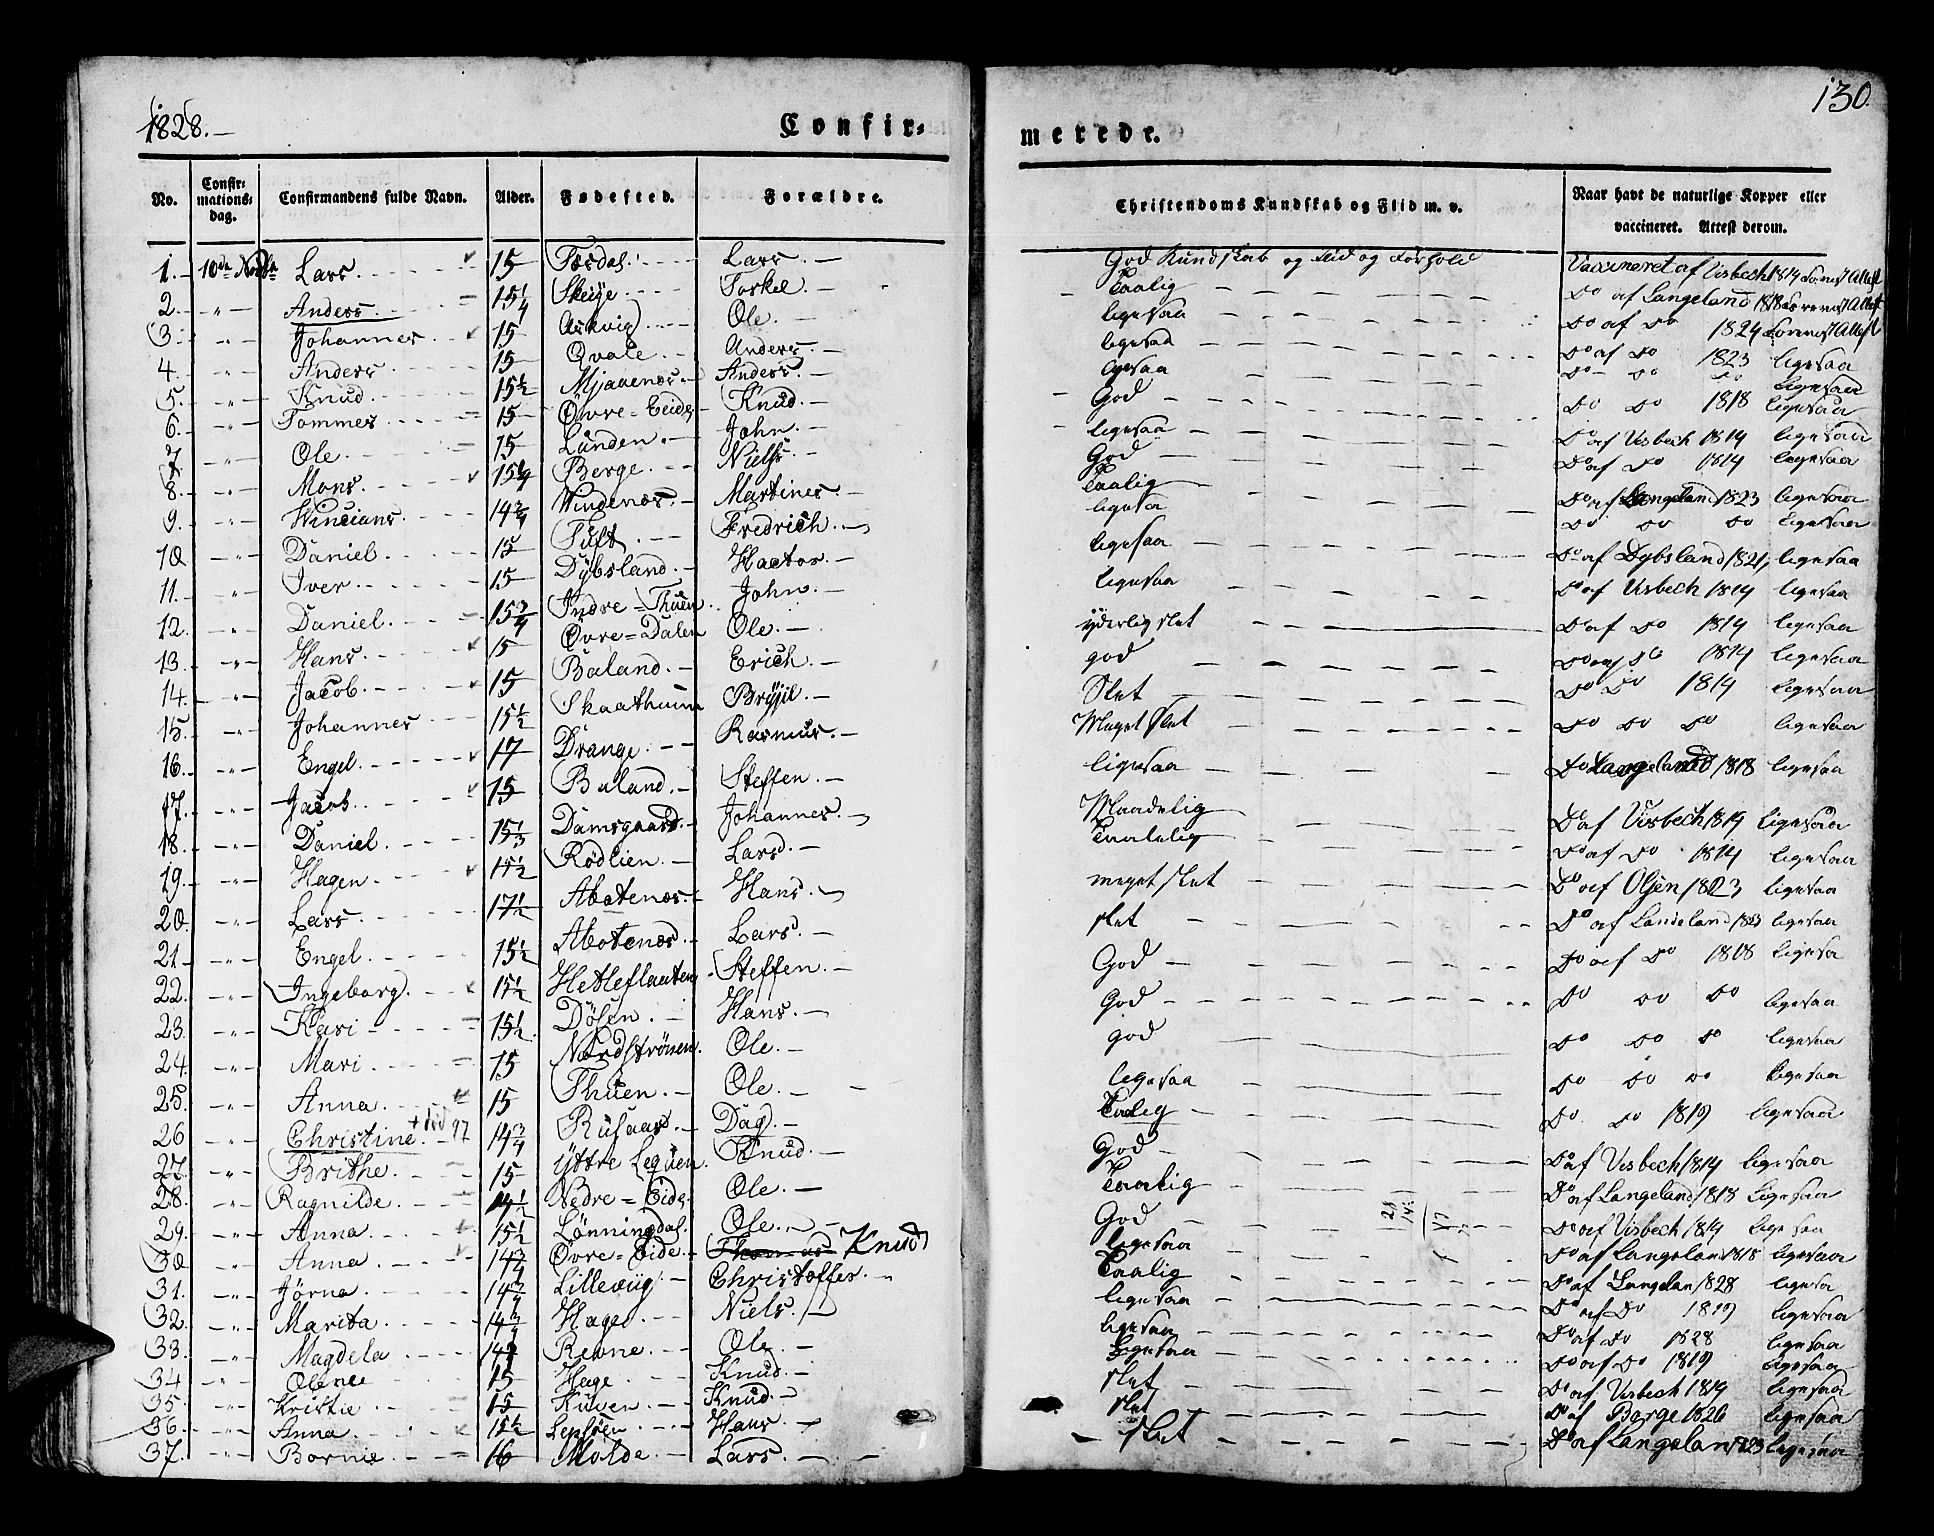 1828.
130.
Confir=
merede.
No. Confir=mations=dag. Confirmandens fulde Navn. Alder. Fødested. Forældre. Christendoms Kundskab og Flid m. v. Naar havt de naturlige Kopper eller vaccineret. Attest derom.
1. Lars 15 Lars God Kundskab og Flid og Forhold Vaccineret af Visbech 1814
2. Anders 15¼ Skeije Torkel Taalig Do af Langeland 1818
3. Johannes 15 Askvig Ole ligesaa Do af Do 1824
4. Anders 15 Qvale Anders ligesaa Do af Do 1823 ligesaa
5. Knud 15½ Mjaaenes Anders ligesaa Do Do Do ligesaa
6. Tommes 15 Övre=Eide Knud God Do Do 1818 ligesaa
7. Ole 15 Lunden John ligesaa Do af Visbech 1814 ligesaa
8. Mons 15¼ Berge Niels God Do af Do 1814 ligesaa
9. 14¾ Vindenæs Martines Taalig Do af Langeland 1823 ligesaa
10. Daniel 15 Tuft Fredrich ligesaa Do Do Do ligesaa
11. Iver 15 Dybsland Hactor ligesaa Do af Dybsland ligesaa
12. Daniel 15¾ Indre=Thuen John ligesaa Do af Visbech 1814 ligesaa
13. Hans 15 Övre=Dalen Ole yderlig slet Do af Do 1814 ligesaa
14. Jacob 15 Baland Erich god Do af Do 1814 ligesaa
15. Johannes 15½ Slet Do Do 1814 ligesaa
16. Engel 17 Drange Rasmus Meget slet Do Do Do ligesaa
17. Jacob 15 Baland Steffen ligesaa Do Langeland 1818 ligesaa
18. Daniel 15⅓ Damsgaard Johannes Maadelig Do af Visbech 1814 ligesaa
19. Hagen 15½ Rödlien Lars Taalelig Do af Do 1814 ligesaa
20. Lars 17½ Abotenæs Hans meget slet Do af ligesaa
21. Engel 15½ Abotenæs Lars slet Do af Landeland 1823 ligesaa
22. Ingeborg 15½ Hetleflaaten Steffen God Do af Do 1818 ligesaa
23. Kari 15½ Dölen Hans God Do Do Do ligesaa
24. Mari 15 Nordströnen Ole god Do Do Do ligesaa
25. Anna 15 Thuen Ole ligesaa Do Do Do ligesaa
26 Christine + död 97 14¾ Rusaas Dag Taalig Do Do 1819 ligesaa
27. Brithe 15 Yttre Lequen Knud God Do af Visbech 1814 ligesaa
28. Ragnilde 14½ Nedre=Eide Ole Taalig Do af Langeland 1818 ligesaa
29. Anna 15½ Lönningdal Ole God Do af Visbech 1814 ligesaa
30 Anna 14¾ Övre=Eide Thomas Knud ligesaa Do af Langelan 1818 ligesaa
31. Jörna 14¾ Lillevig Christoffer Taalig Do af Langelan 1828 ligesaa
32. Marita 14¾ Hage Niels ligesaa Do af Do 1819 ligesaa
33. Magdela Revne Ole ligesaa Do af Do 1828 ligesaa
34 Olene 15 Hage Knud ligesaa Do af Do 1819 ligesaa
35. Kristie 15 Kuven Knud slet Do af Visbech 1814 ligesaa
36. Anna 15½ Lepsöen Hans slet Do af Berge 1826 ligesaa
37. Bornie 16 Molde Lars slet Do af Langelan 1823 ligesaa